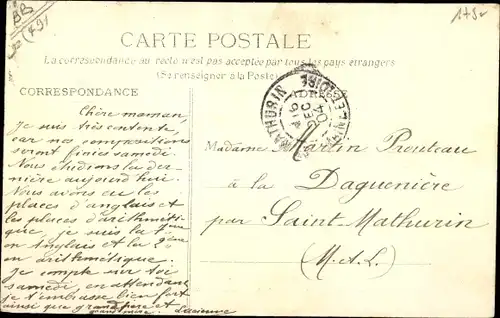 CARTE POSTALE
La correspondance au recto n'est pas acceptée par tous les pays étrangers
(Se renseigner à la Poste)
CORRESPONDANCE
ADRESSE
Chère maman,
Je suis très contente,
car nos compositions
seront finies samedi.
Nous étudions la der-
nière aujourd'hui.
Nous avons eu les
places d'anglais et
les places d'arithméti-
que, je suis la 1ère
en Anglais et la 2ème
en arithmétique.
Je compte sur toi
samedi, en attendant
je t'embrasse bien fort
ainsi que grand père et
grand'mère. Lucienne
Madame Martin Prouteau
à la Daguenière
par Saint-Mathurin
(M.-&-L.)
MATHURIN
16
DEC
04